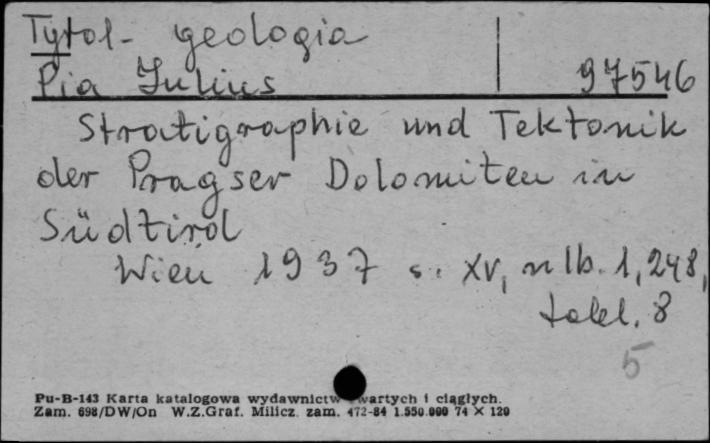 Tyrol - geologia
Pia Julius 97546
Stratigraphie und Tektonik
der Pragser Dolomiten in
Südtirol
Wien 1937 s. XV, nlb. 1, 248,
tabl. 8
5
Pu-B-143 Karta katalogowa wydawnictw zwartych i ciągłych.
Zam. 698/DW/On W.Z.Graf. Milicz. zam. 472-84 1.550.000 74 × 120